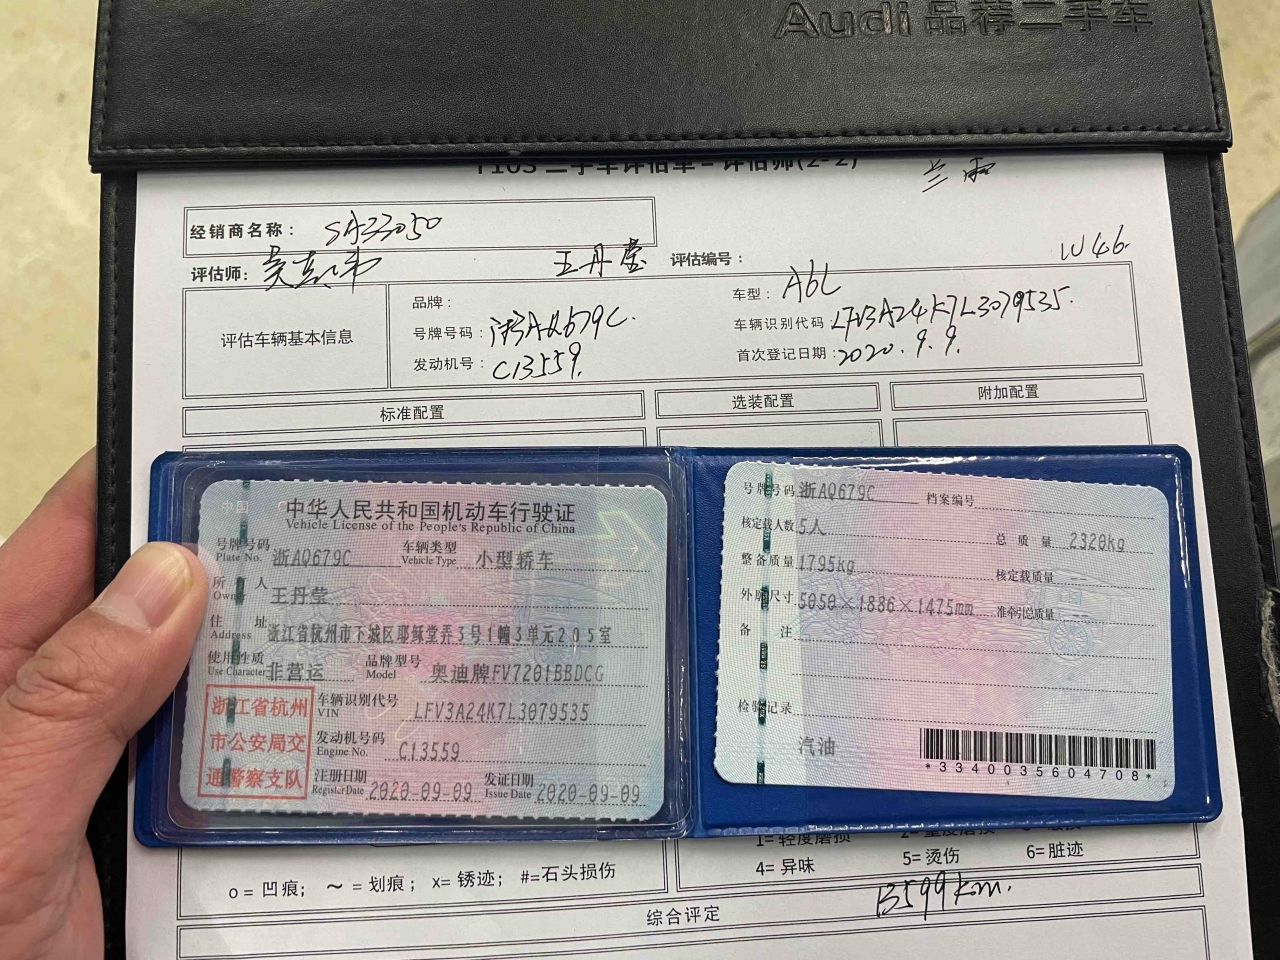 Audi 品荐二手车
T103 二手车评估单 – 评估师(2-2)
经销商名称： SA33050
评估师： 王丹莹 评估编号： W46.
评估车辆基本信息
品牌： 车型： A6L
号牌号码： 浙AQ679C. 车辆识别代码： LFV3A24K7L3079535.
发动机号： C13559. 首次登记日期： 2020.9.9.
标准配置 选装配置 附加配置
中国
中华人民共和国机动车行驶证
Vehicle License of the People's Republic of China
号牌号码 浙AQ679C 车辆类型 小型轿车
Plate No. Vehicle Type
所有人 王丹莹
Owner
住址 浙江省杭州市下城区耶稣堂弄3号1幢3单元205室
Address
使用性质 非营运 品牌型号 奥迪牌FV7201BBDCG
Use Character Model
浙江省杭州
市公安局交
通警察支队
车辆识别代号 LFV3A24K7L3079535
VIN
发动机号码 C13559
Engine No.
注册日期 2020-09-09 发证日期 2020-09-09
Register Date Issue Date
号牌号码 浙AQ679C 档案编号
核定载人数 5人 总质量 2320kg
整备质量 1795kg 核定载质量 --
外廓尺寸 5050×1886×1475mm 准牵引总质量 --
备注
检验记录
汽油
*3340035604708*
1= 轻度磨损
4= 异味 5= 烫伤 6= 脏迹
o = 凹痕； ～ = 划痕； x= 锈迹； #=石头损伤
综合评定
13599km.